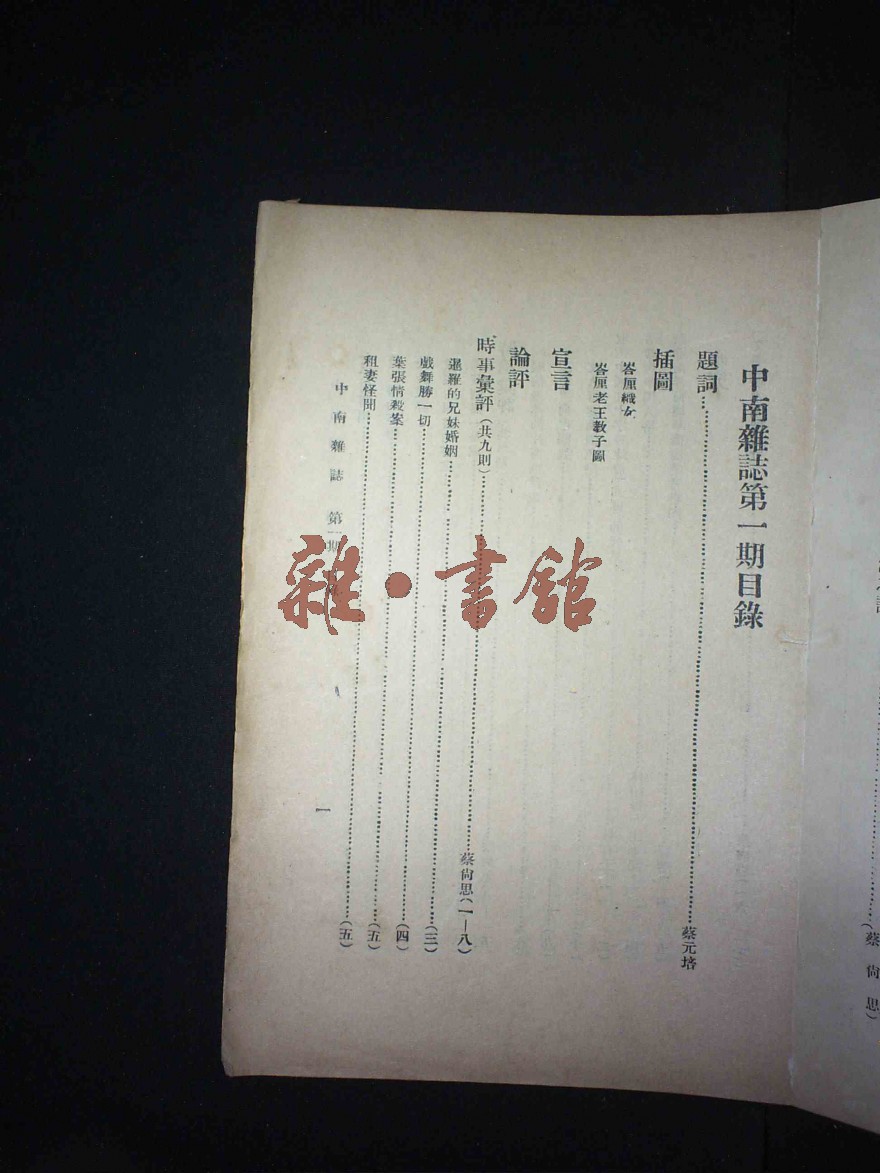 中南雜誌第一期目錄
題詞……蔡元培
插圖
峇厘織女
峇厘老王教子圖
宣言
論評
時事彙評(共九則)……蔡尙思(一—八)
暹羅的兄妹婚姻……(三)
戲舞勝一切……(四)
葉張情殺案……(五)
租妻怪聞……(五)
中南雜誌 第一期
一
雜·書館
(蔡尙思)